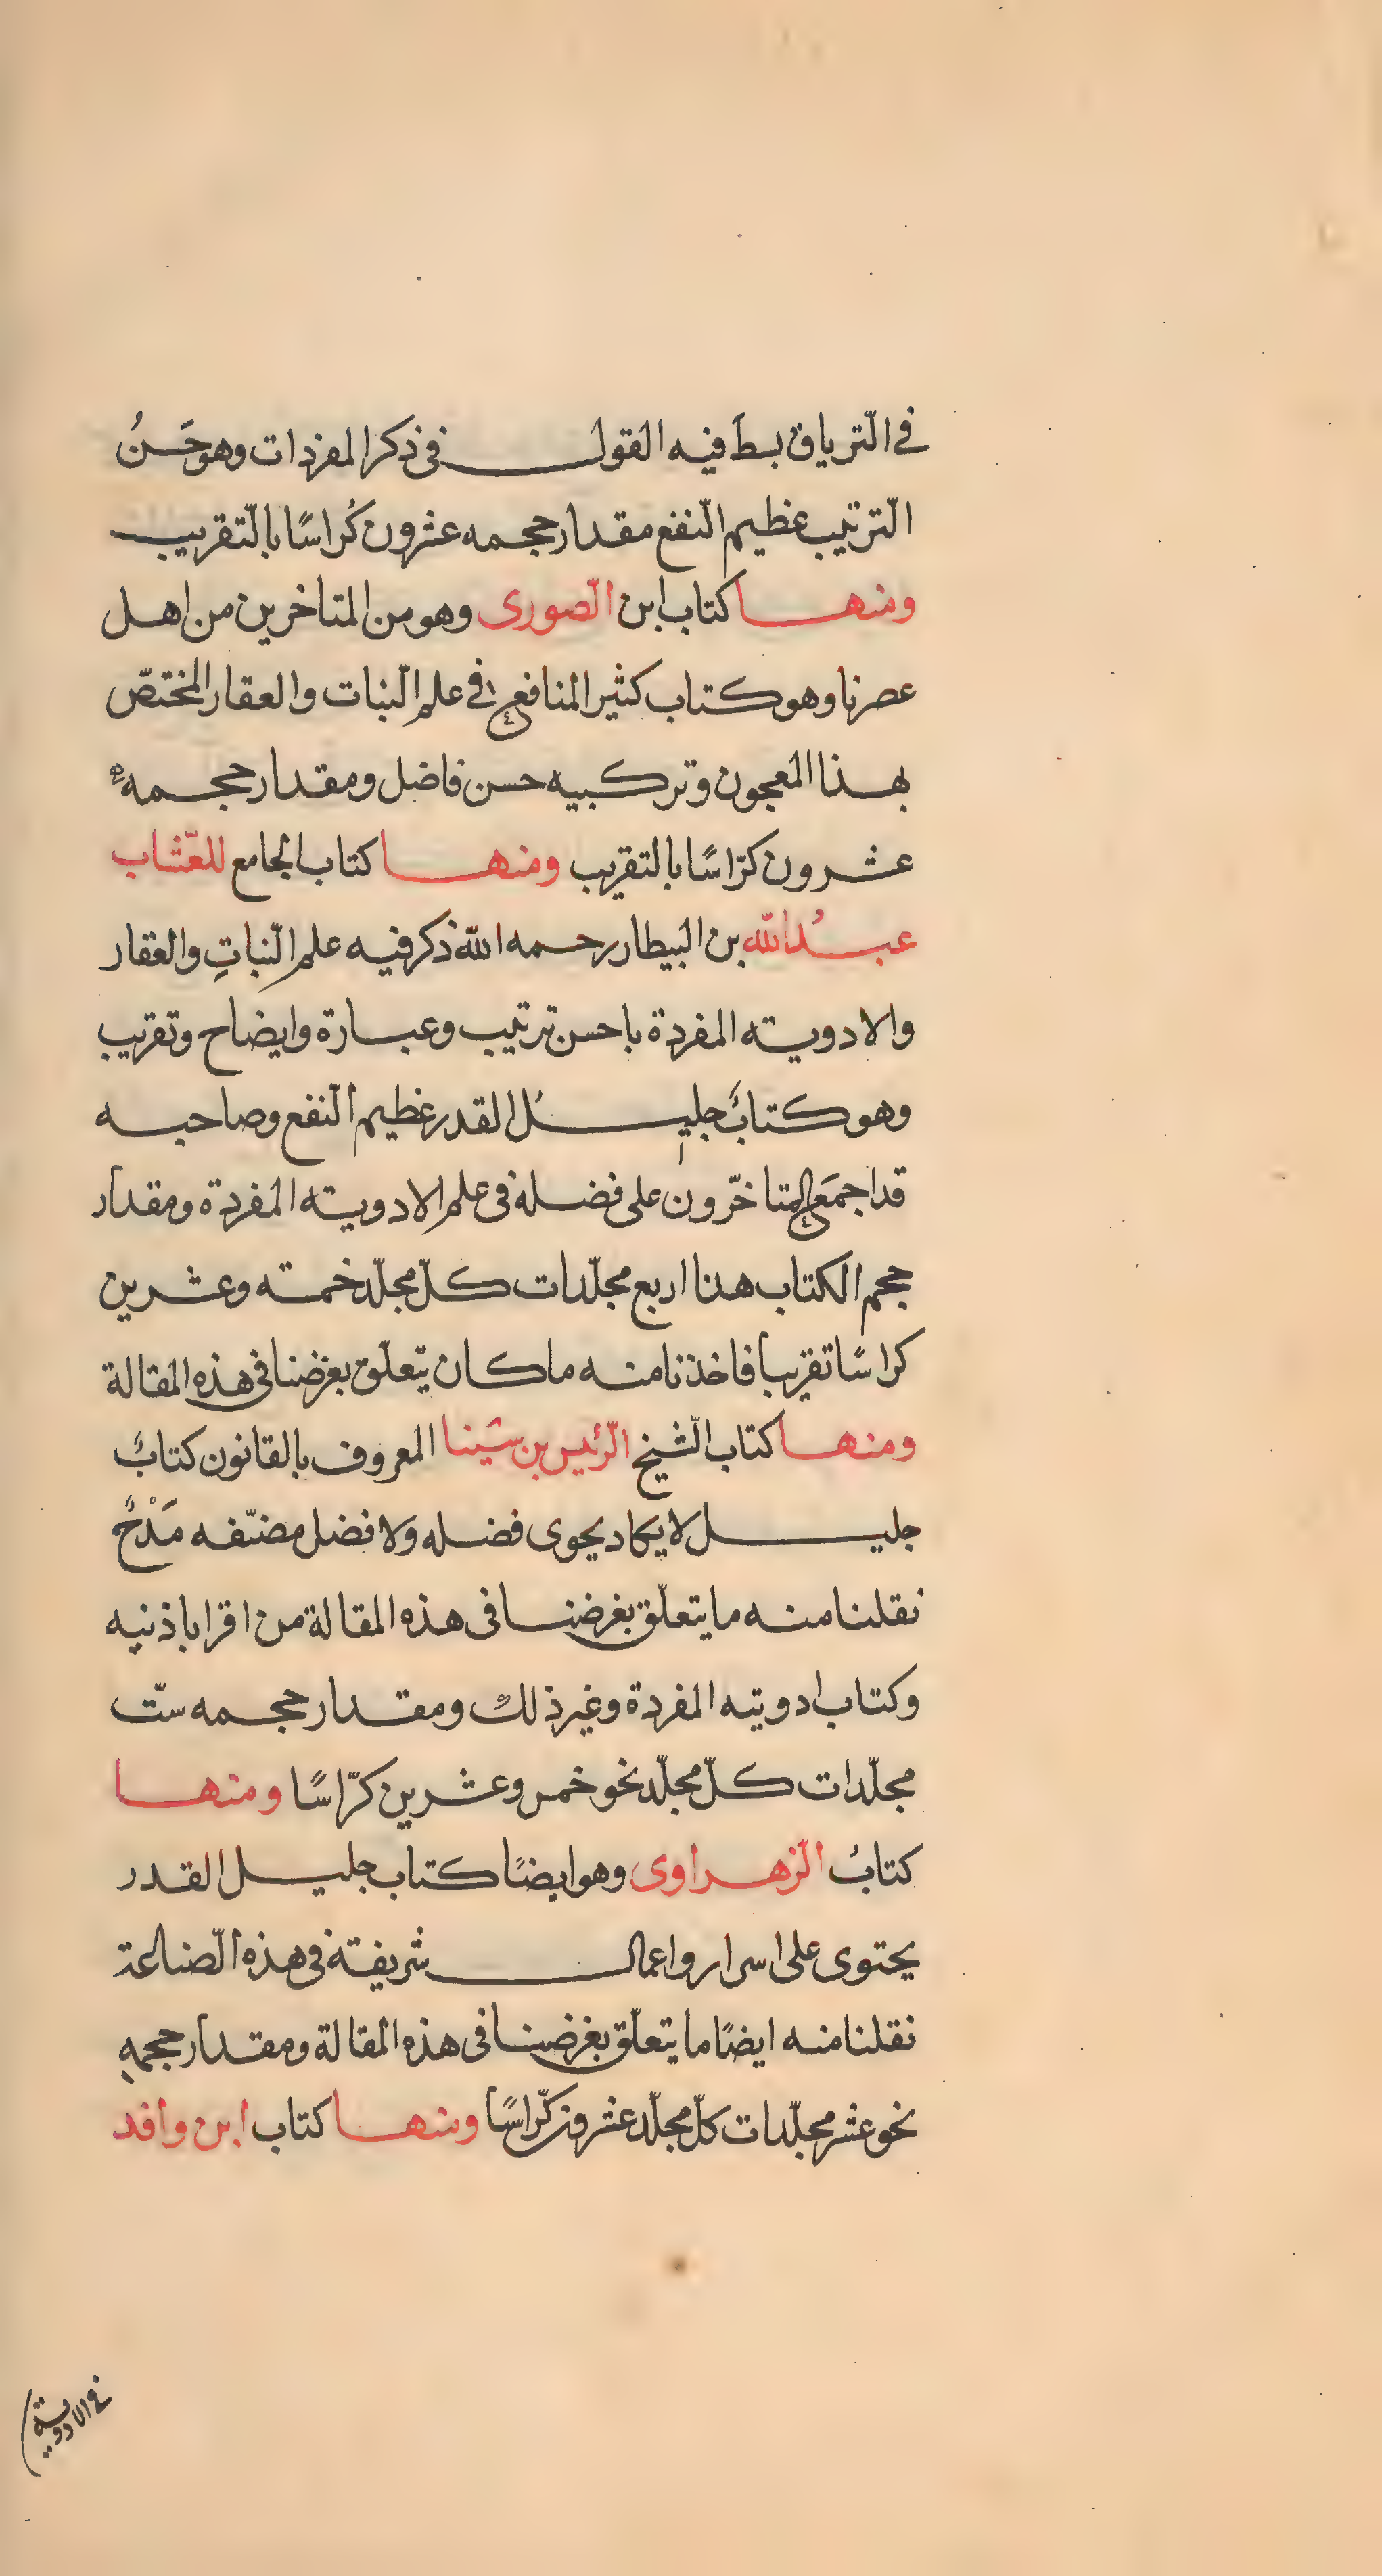 في التّرياق بسط فيه القول في ذكر المفردات وهو حَسَنُ
التّرتيب عظيم النّفع مقدار حجمه عشرون كُراسًا بالتّقريب
ومنها كتاب ابن الصّورى وهو من المتاخرين من اهل
عصرنا وهو كتاب كثير المنافع في علم النّبات والعقار المختصّ
بهذا المعجون وتركيبه حسن فاضل ومقدار حجمه
عشرون كرّاسًا بالتقريب ومنها كتاب الجامع للعّشاب
عبدُ الله بن البيطار رحمه الله ذكر فيه علم النّباتِ والعقار
والادوية المفردة باحسن ترتيب وعبارة وايضاح وتقريب
وهو كتابٌ جليلُ القدر عظيم النّفع وصاحبه
قد اجمَع المتاخّرون على فضله فى علم الادوية المفردة ومقدار
حجم الكتاب هذا اربع مجلّدات كلّ مجلّد خمسة وعشرين
كراسًا تقريبا فاخذنا منه ما كان يتعلّق بغرضنا فى هذه المقالة
ومنها كتاب الشّيخ الرّئيس بن سَينا المعروف بالقانون كتابٌ
جليل لا يكاد يحوى فضله ولا فضل مصنّفه مَدْحٌ
نقلنا منه ما يتعلّق بغرضنا فى هذه المقالة من اقراباذينه
وكتاب ادويته المفردة وغير ذلك ومقدار حجمه ستّ
مجلّدات كلّ مجلّد نحو خمس وعشرين كرّاسًا ومنها
كتابُ الزّهراوى وهو ايضًا كتاب جليل القدر
يحتوى على اسرار واعمال شريفة فى هذه الصّناعة
نقلنا منه ايضًا ما يتعلّق بغرضنا فى هذه المقالة ومقدار حجمهِ
نحو عشر مجلّدات كلّ مجلّد عشرون كرّاسًا ومنها كتاب ابن وافد
فى الادوية